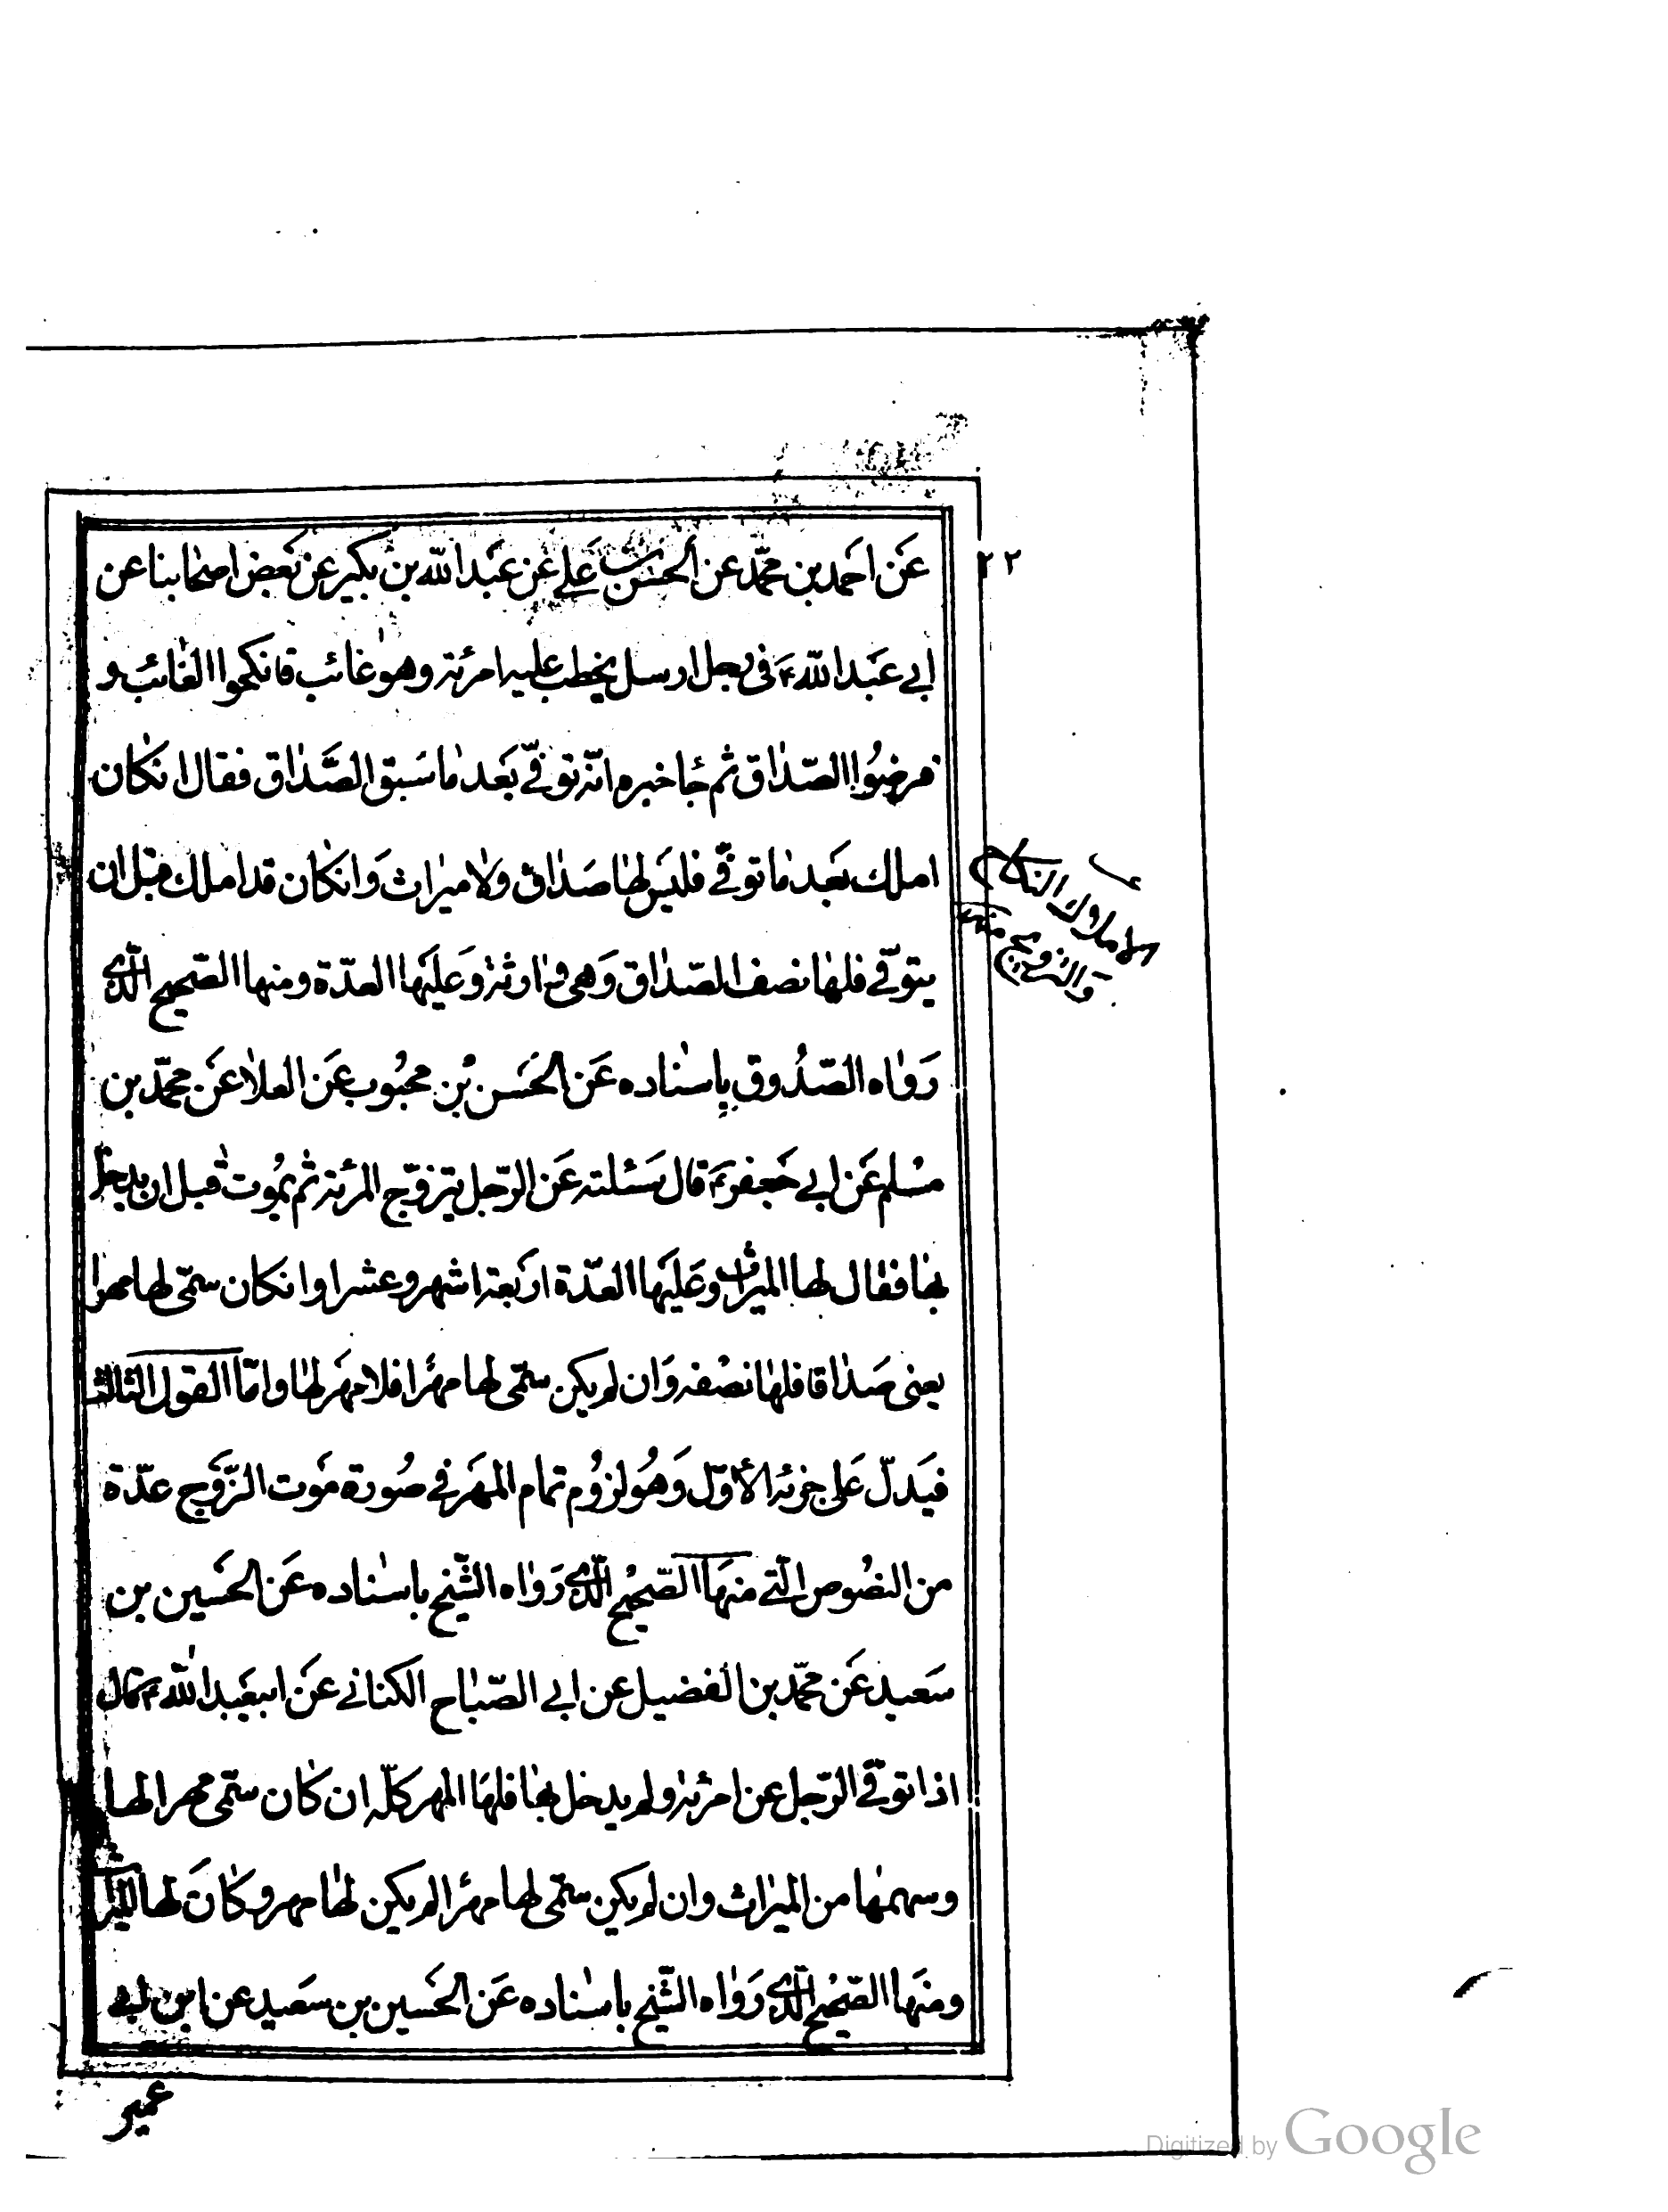 ٢٢
عَن احمَد بن محمّد عن الحسَن بن علي عَن عَبد الله بن بكير عَن بَعض اصحابنا عن
ابي عَبد الله ع في رجل ارسل يخطب عليه امرئة وهو غائب فانكحوا الغائب و
فرضوا الصّداق ثم جا خبره انّه توفّي بَعد ما سَبق الصَّداق فقال ان كان
املك بَعد ما توفّي فليس لها صَداق ولا ميراث وَان كان قد املك قبل ان
يتوفّي فلها نصف الصّداق وَهي وارثة وَعليَها العدّة ومنها الصّحيح الّذي
رَواه الصّدُوق باسناده عَن الحَسَن بْن محبُوب عَن العلا عَن محمّد بن
مسُلم عَن ابي جَعفر ع قال سَئلته عَن الرّجل يتزوّج المرئة ثم يمُوت قبل ان يدخل
بها فقال لها الميراث وعَليَها العدّة اربَعة اشهر وعشرا وان كان سمّى لها مهرا
يعني صَداقا فلها نصُفه وَان لم يكن سمّى لها مهرًا فلا مهَر لها وامّا القول الثالث
فيَدلّ عَلى جزئه الأوّل وَهُو لزوُم تمام المهَر في صُورة مَوت الزّوَج عدّة
من النصُوص الّتي منهَا الصّحيحُ الّذي رَواه الشّيخ باسناده عَن الحسَين بن
سَعيد عَن محمّد بن الفضيل عن ابي الصّباح الكناني عَن ابيعَبد الله ع قال
اذا توفّي الرّجل عن امرئة ولم يدخل بها فلهَا المهر كلّه ان كان سمّى مهرا لها
وسهمها من الميراث وان لم يكن سمّى لها مهرًا لم يكن لها مهر وكانَ لها الميراث
ومنهَا الصّحيحُ الّذي رَواه الشّيخ باسناده عَن الحسَين بن سَعيد عن ابن ابي
عمير
الاملاك النكاح
والتزويج منه